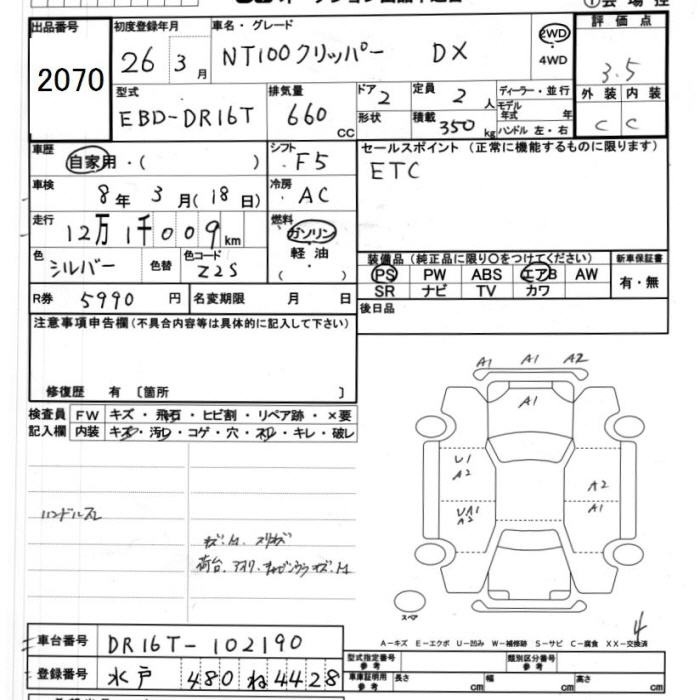 出品番号 2070
初度登録年月 26 3月
車名・グレード NT100クリッパー DX
2WD
4WD
評価点 3.5
外装 内装
C C
型式 EBD-DR16T
排気量 660 CC
ドア 2
形状
定員 2 人
積載 350 kg
ディーラー・並行
モデル年式 年
ハンドル 左・右
車歴 自家用・( )
シフト F5
セールスポイント (正常に機能するものに限ります)
ETC
車検 8年 3月(18日)
冷房 AC
走行 12万1千009km
燃料 ガソリン
軽油
( )
色 シルバー 色替 色コード Z2S
装備品 (純正品に限り〇をつけてください)
新車保証書
PS PW ABS エアB AW
有・無
SR ナビ TV カワ
R券 5990 円
名変期限 月 日
後日品
注意事項申告欄(不具合内容等は具体的に記入して下さい)
修復歴 有 〔箇所 〕
検査員記入欄
FW キズ・飛石・ヒビ割・リペア跡・×要
内装 キズ・汚レ・コゲ・穴・スレ・キレ・破レ
ハンドルスレ
A1 A1 A2
A1
U1
A2
UA1
A2
A2
A1
スペア
4
A-キズ E-エクボ U-凹み W-補修跡 S-サビ C-腐食 XX-交換済
車台番号 DR16T-102190
登録番号 水戸 480 ね 4428
型式指定番号 参考
類別区分番号 参考
車庫証明用 参考 長さ cm 幅 cm 高さ cm